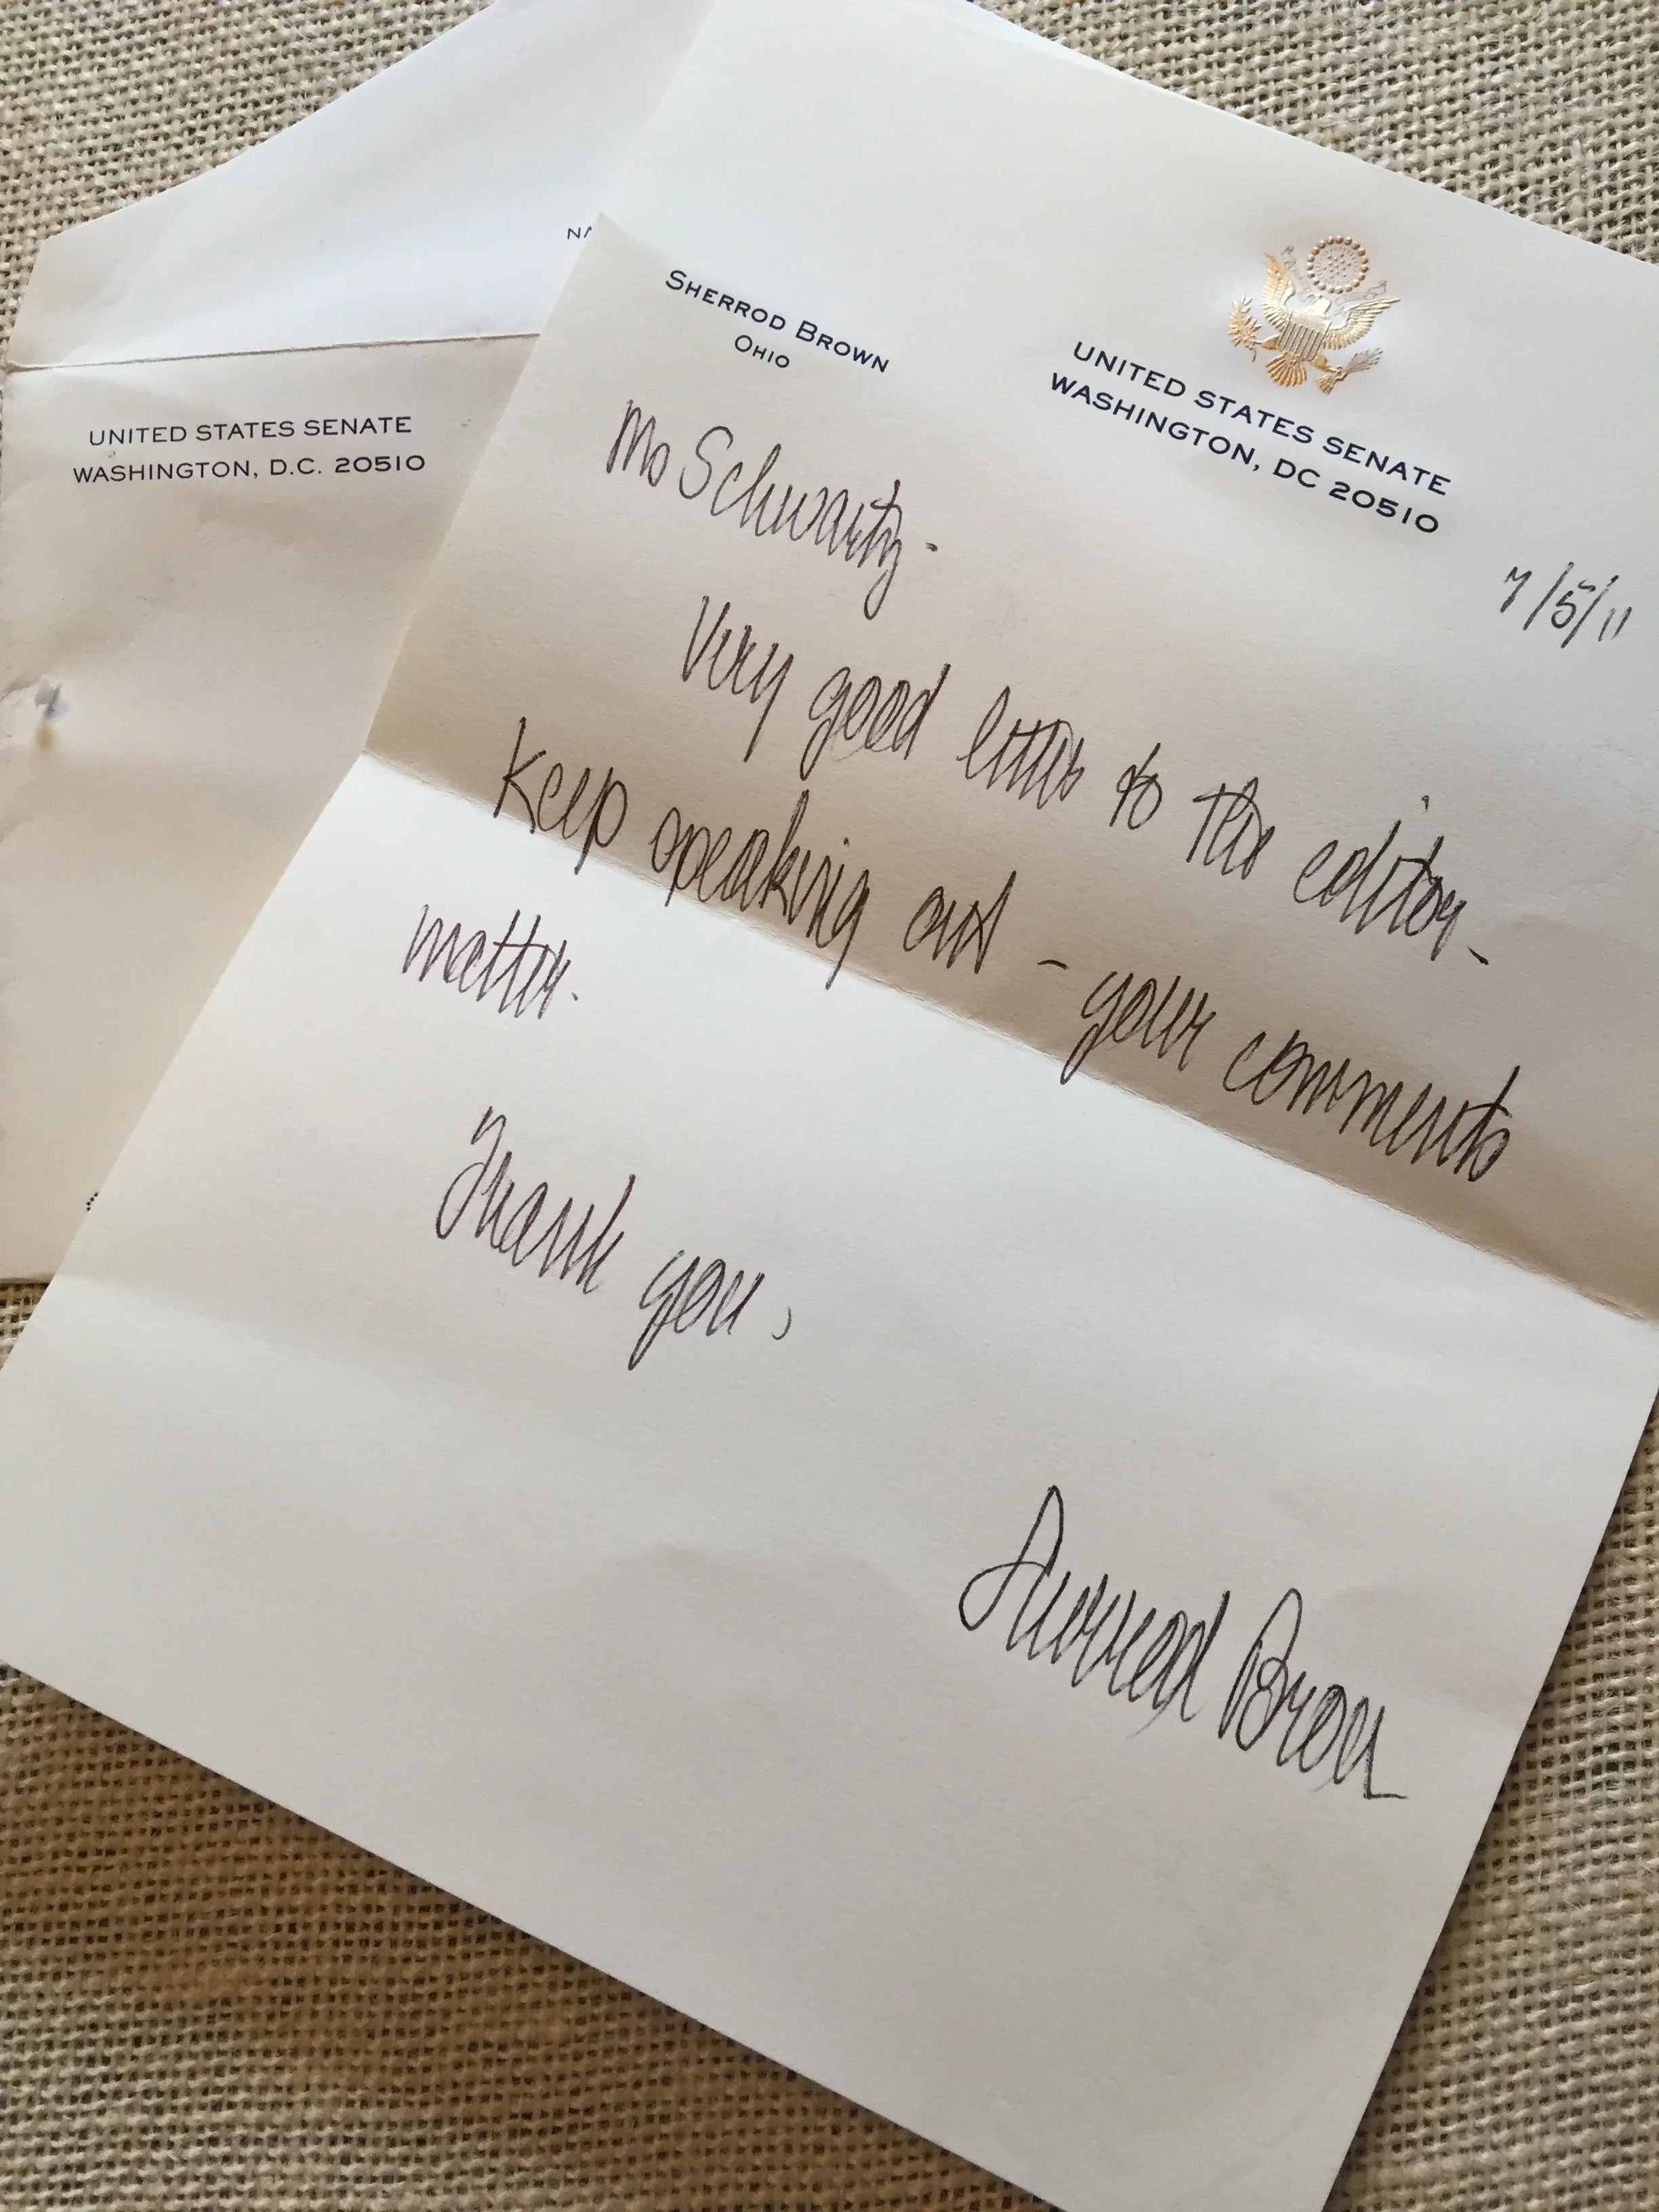 UNITED STATES SENATE
WASHINGTON, D.C. 20510
SHERROD BROWN
OHIO
UNITED STATES SENATE
WASHINGTON, DC 20510
7/5/11
Ms Schwartz-
Very good letter to the editor-
Keep speaking out - your comments
matter.
Thank you,
Sherrod Brown